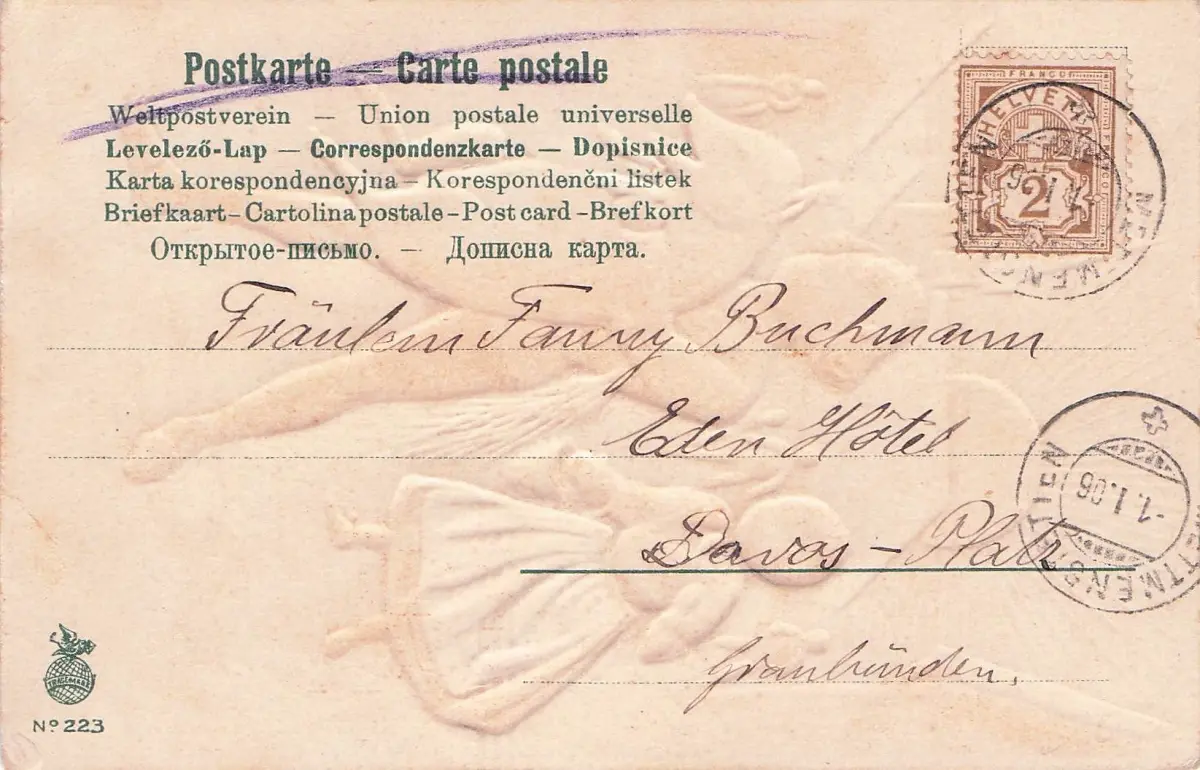 Postkarte — Carte postale
Weltpostverein — Union postale universelle
Levelező-Lap — Correspondenzkarte — Dopisnice
Karta korespondencyjna — Korespondenčni listek
Briefkaart — Cartolina postale — Post card — Brefkort
Открытое-письмо. — Дописна карта.
FRANCO
HELVETIA
2
Fräulein Fanny Buchmann
Eden Hôtel
Davos – Platz
-1.I.06
Graubünden.
Nº 223